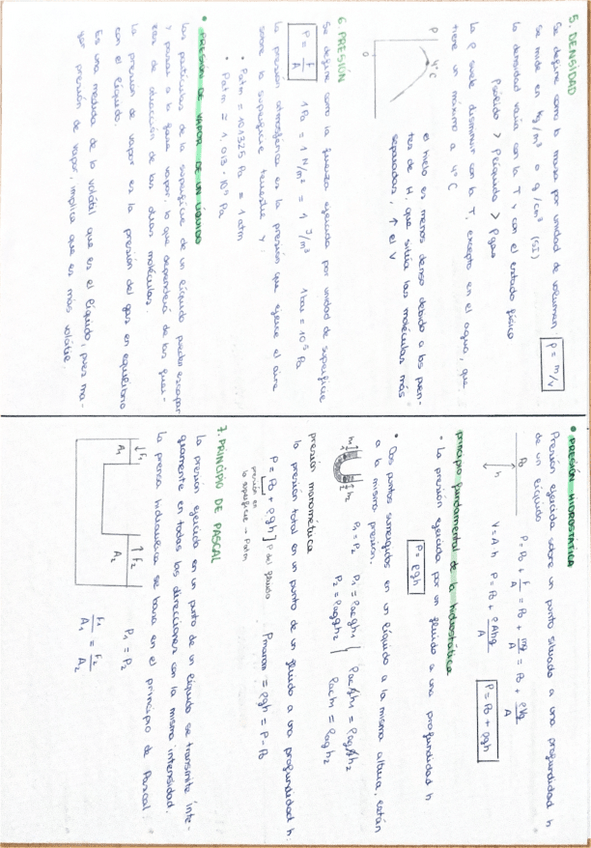 5. DENSIDAD
Se define como la masa por unidad de volumen
ρ = m/v
Se mide en kg/m³ o g/cm³ (SI)
La densidad varía con la T y con el estado físico
ρsólido > ρlíquido > ρgas
La ρ suele disminuir con la T, excepto en el agua, que
tiene un máximo a 4º C
ρ
4ºC
0
el hielo es menos denso debido a los puen-
tes de H, que sitúa las moléculas más
separadas, ↑ el V
6 PRESIÓN
Se define como la fuerza ejercida por unidad de superficie
P = F/A
1 Pa = 1 N/m² = 1 J/m³
1 bar = 10⁵ Pa
La presión atmosférica es la presión que ejerce el aire
sobre la superficie terrestre y:
• Patm = 101325 Pa = 1 atm
• Patm = 1.013 · 10⁵ Pa
• PRESIÓN DE VAPOR DE UN LÍQUIDO
Las partículas de la superficie de un líquido pueden escapar
y pasar a la fase vapor, lo que dependerá de las fuer-
zas de atracción de las otras moléculas.
La presión de vapor es la presión del gas en equilibrio
con el líquido.
Es una medida de lo volátil que es el líquido, pues ma-
yor presión de vapor, implica que es más volátil.
• PRESIÓN HIDROSTÁTICA
Presión ejercida sobre un punto situado a una profundidad h
de un líquido
P₀
h
P = P₀ + F/A = P₀ + mg/A = P₀ + ρVg/A
V = A·h
P = P₀ + ρAhg/A
P = P₀ + ρgh
principio fundamental de la hidrostática
• La presión ejercida por un fluido a una profundidad h
P = ρgh
• Dos puntos sumergidos en un líquido a la misma altura, están
a la misma presión.
h₁
h₂
P₁ = P₂
P₁ = ρac g h₁
P₂ = ρag g h₂
ρac g h₁ = ρag g h₂
ρac h₁ = ρag h₂
presión manométrica
la presión total en un punto de un fluido a una profundidad h:
P = P₀ + ρgh
P del fluido
Pmanom = ρgh = P - P₀
presión en
la superficie → Patm
7. PRINCIPIO DE PASCAL
La presión ejercida en un punto de un líquido se transmite ínte-
gramente en todas las direcciones con la misma intensidad.
La prensa hidráulica se basa en el principio de Pascal:
F₁
A₁
F₂
A₂
P₁ = P₂
F₁/A₁ = F₂/A₂